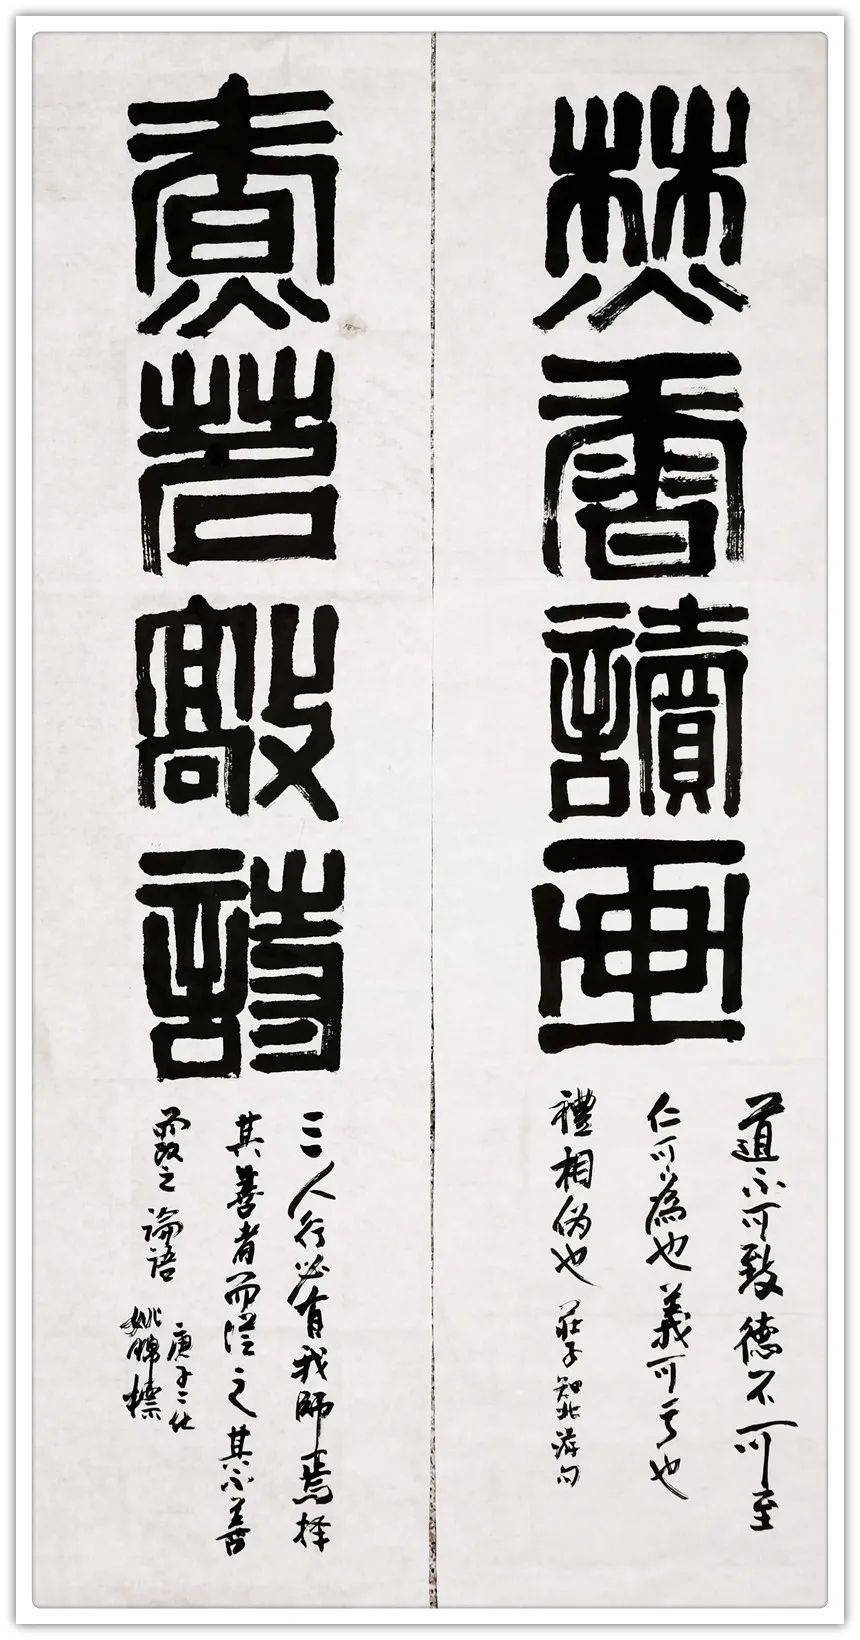 焚香讀画
道不可致德不可至
仁可為也義可亏也
禮相伪也 莊子知北游句
煮茗敲詩
三人行必有我師焉择
其善者而從之其不善
而改之 論語
庚子
姚標